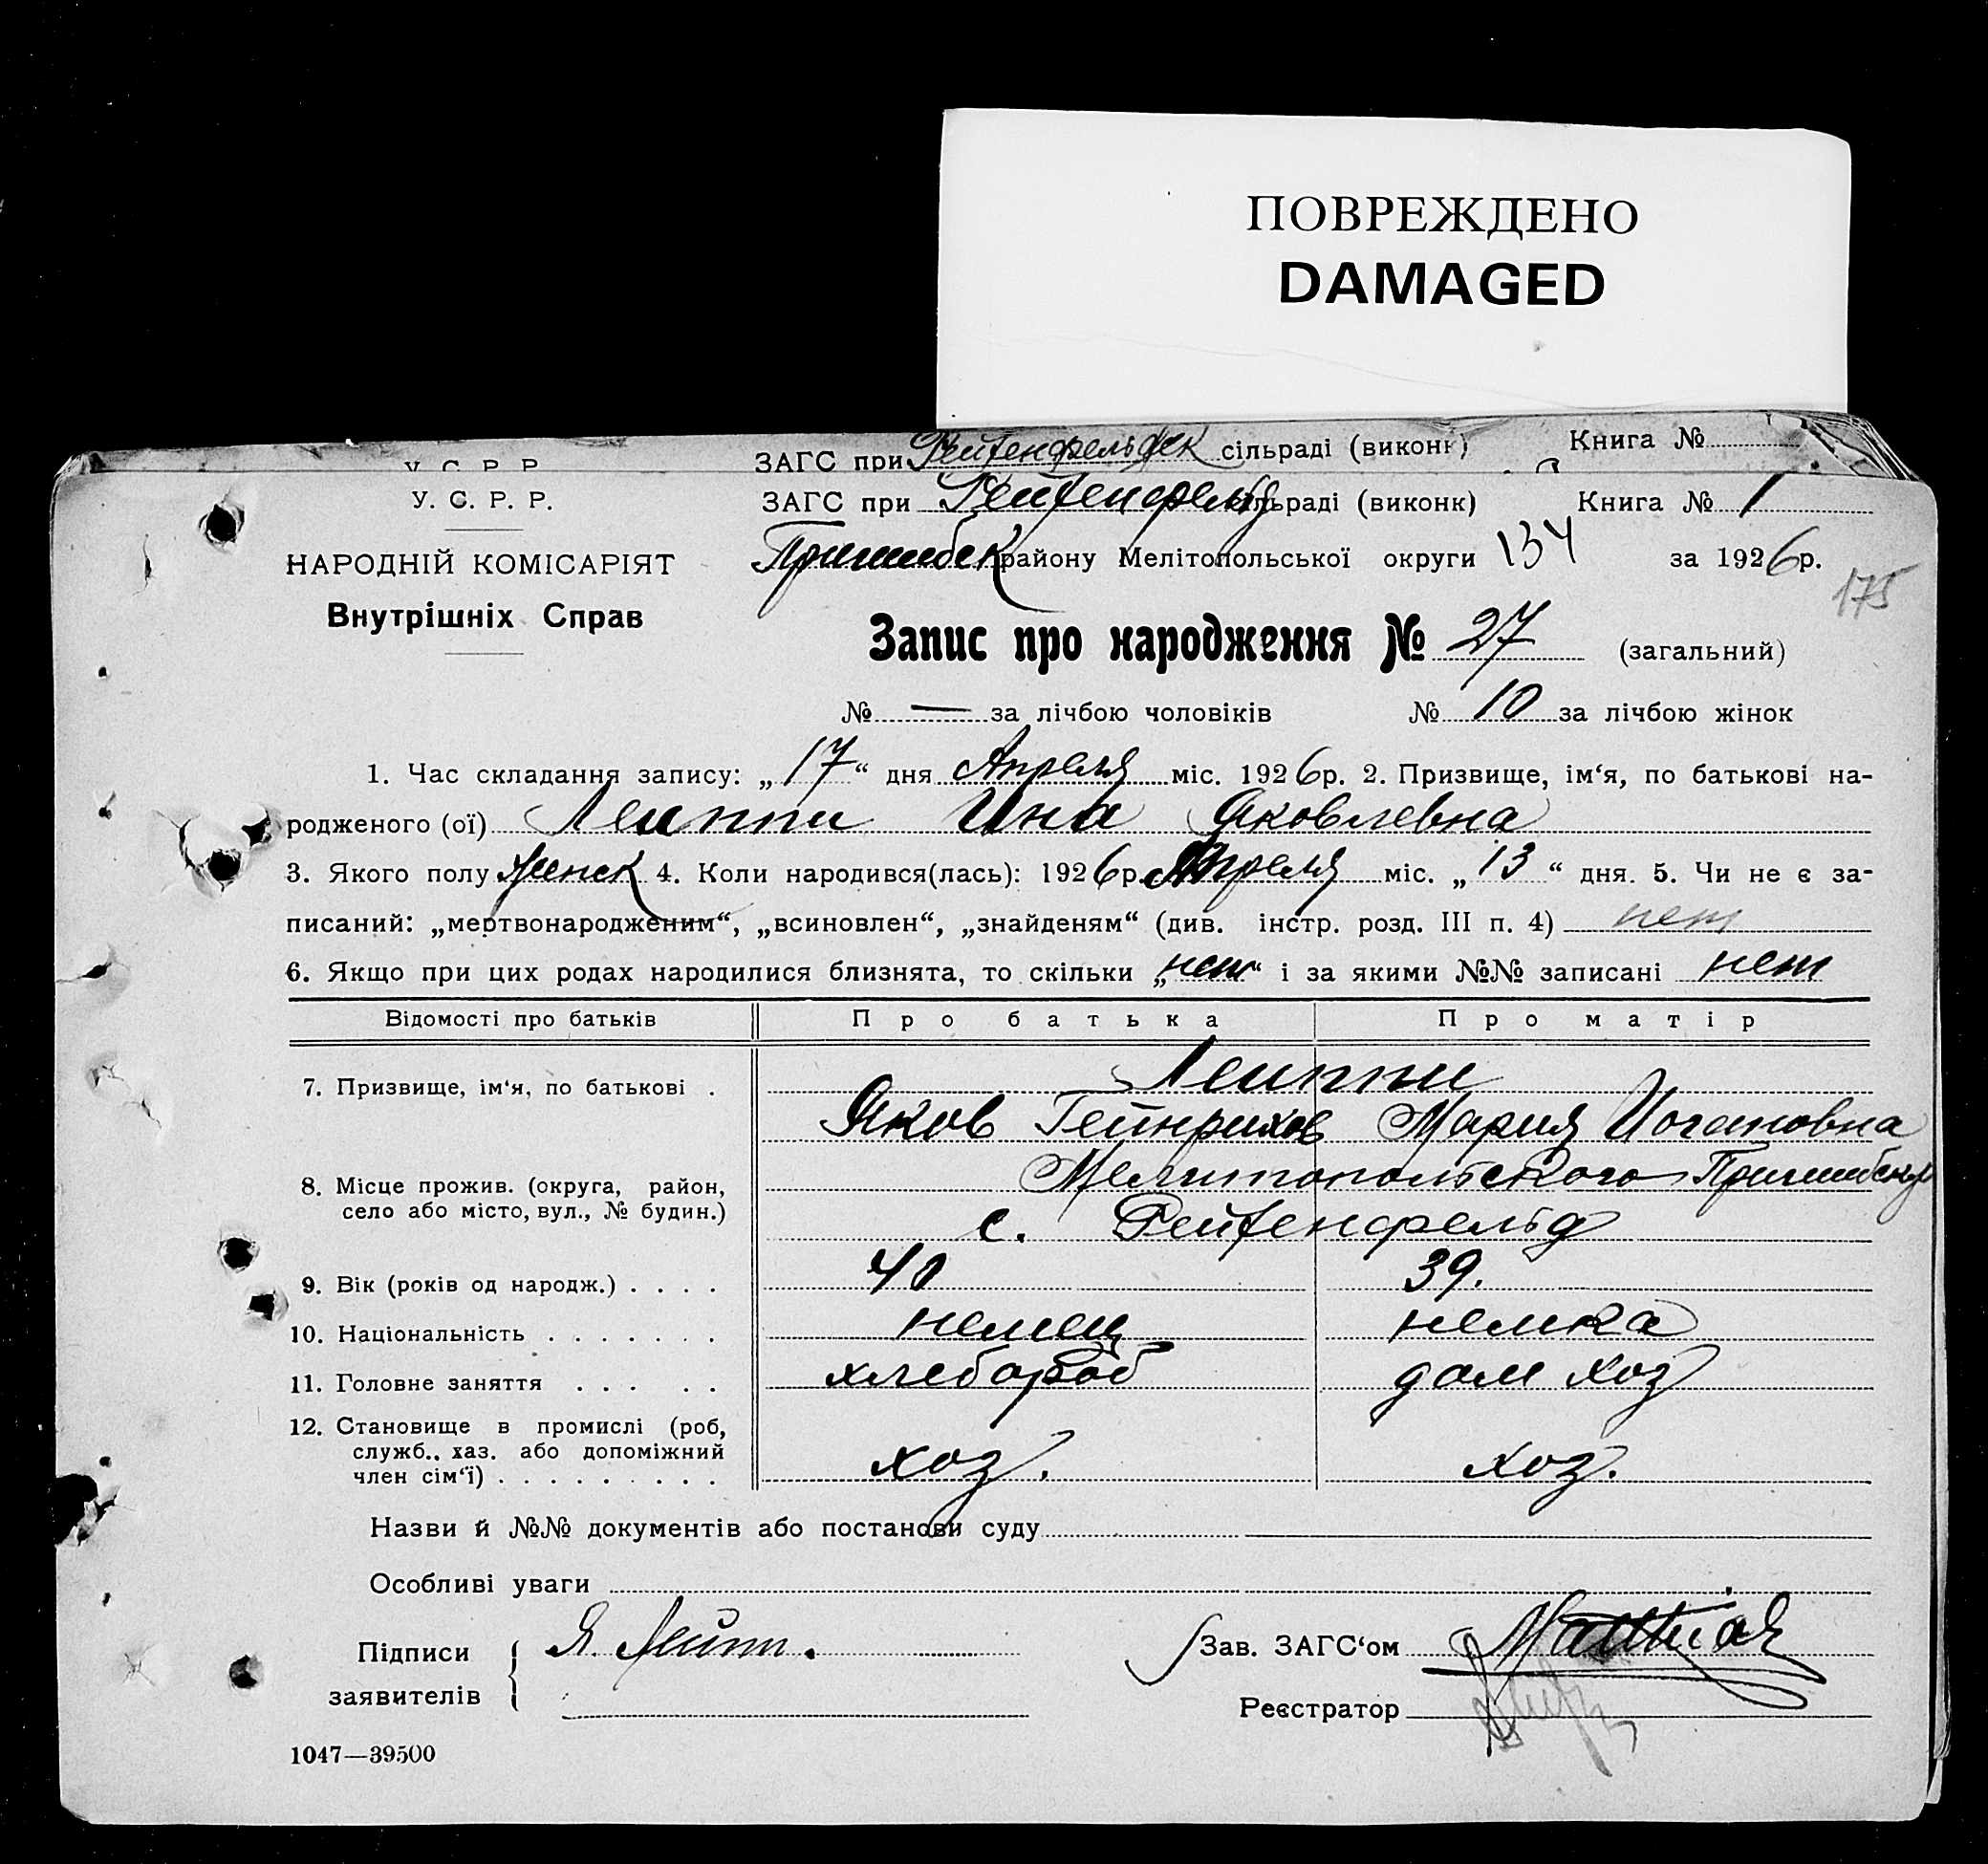 ПОВРЕЖДЕНО
DAMAGED
У. С. Р. Р.
ЗАГС при Рейтенфельдск сільраді (виконк)
Книга №
У. С. Р. Р.
ЗАГС при Рейтенфельд сільраді (виконк)
Книга № 1
НАРОДНІЙ КОМІСАРІЯТ
Пришибск району Мелітопольської округи 134 за 1926р.
175
Внутрішніх Справ
Запис про народження № 27 (загальний)
№ — за лічбою чоловіків № 10 за лічбою жінок
1. Час складання запису: „17“ дня Апреля міс. 1926р. 2. Призвище, ім‘я, по батькові на-
родженого (ої) Леиппи Ина Яковлевна
3. Якого полу женск 4. Коли народився(лась): 1926р. Апреля міс. „13“ дня. 5. Чи не є за-
писаний: „мертвонародженим“, „всиновлен“, „знайденям“ (див. інстр. розд. III п. 4) нет
6. Якщо при цих родах народилися близнята, то скільки „нет“ і за якими №№ записані нет
Відомості про батьків Про батька Про матір
7. Призвище, ім‘я, по батькові . Леиппи
Яков Гейнрихов Мария Иогановна
8. Місце прожив. (округа, район, село або місто, вул., № будин.) Мелитопольского Пришибског
с. Рейтенфельд
9. Вік (років од народж.) . . . . 40 39.
10. Національність . . . . . . . немец немка
11. Головне заняття . . . . . хлебороб дом хоз
12. Становище в промислі (роб,
служб., хаз. або допоміжний
член сім‘ї) . . . . . . . . . хоз. хоз.
Назви й №№ документів або постанови суду
Особливі уваги
Підписи
заявителів
Я. Лейпп.
Зав. ЗАГС‘ом
Реєстратор
1047—39500